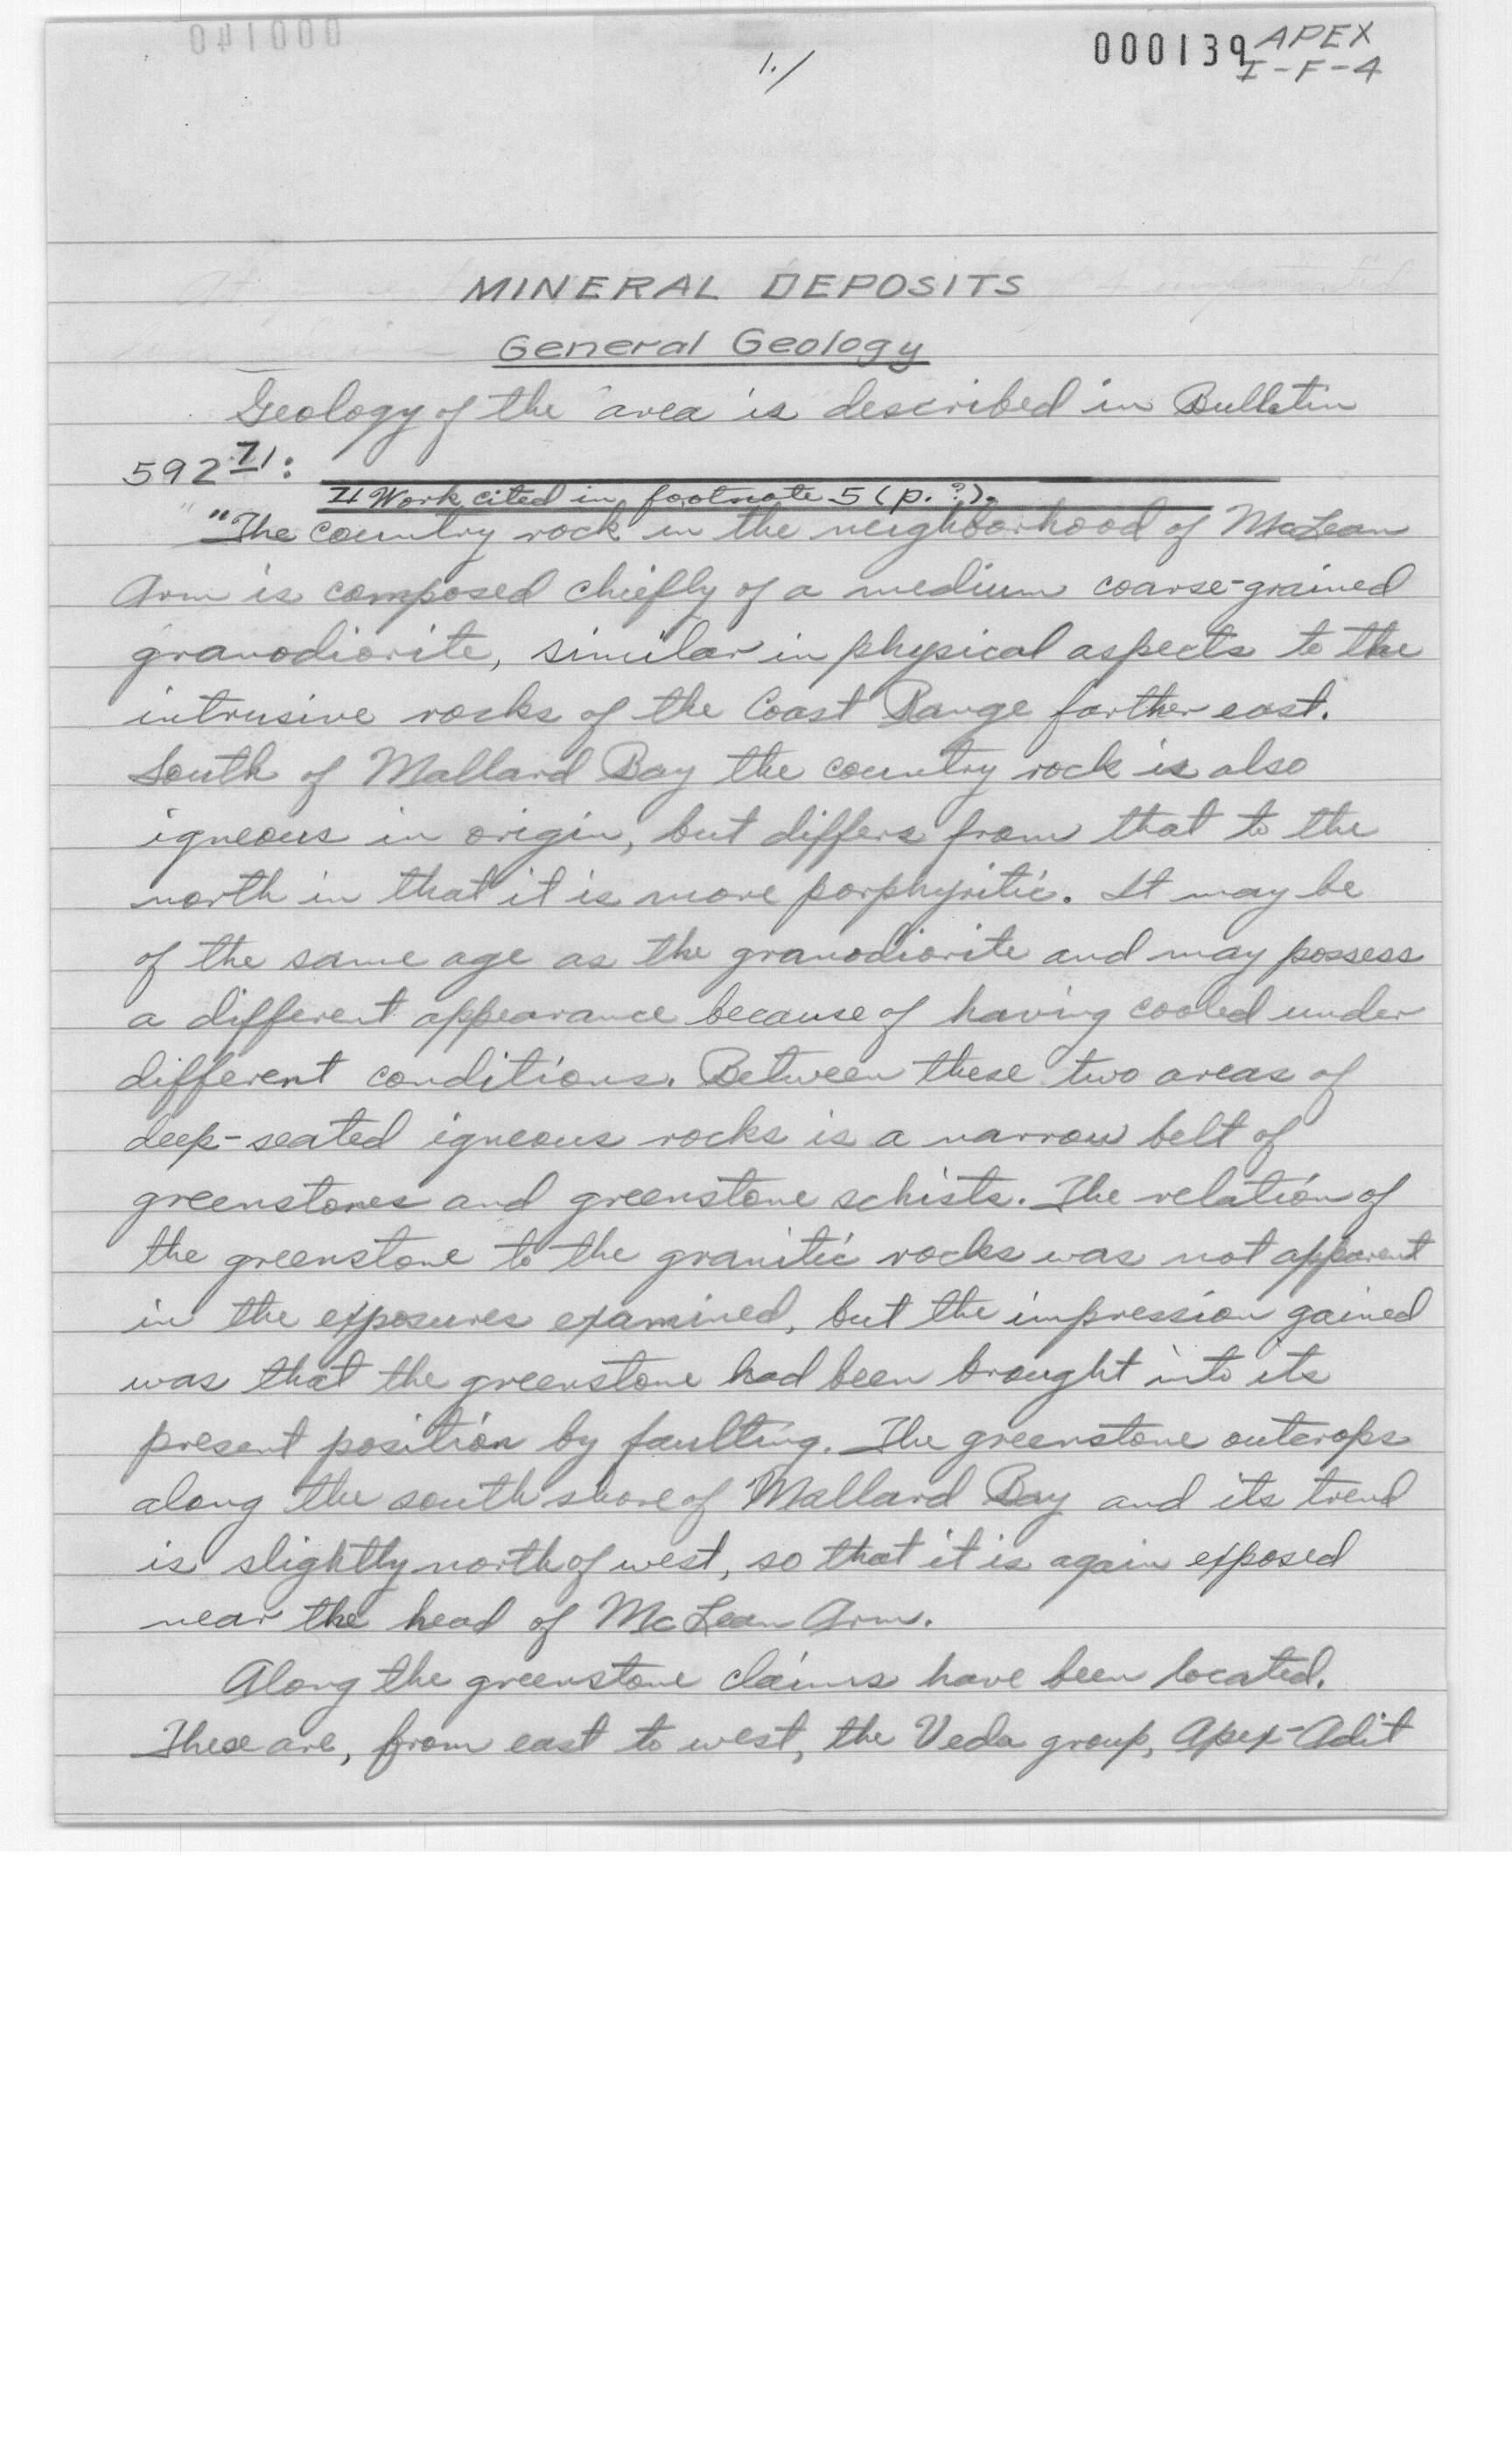 1./
000139 APEX
I-F-4
MINERAL DEPOSITS
General Geology
Geology of the area is described in Bulletin
592 7/:
7/ Work cited in footnote 5 (p. ?).
"The country rock in the neighborhood of McLean
Arm is composed chiefly of a medium coarse-grained
granodiorite, similar in physical aspects to the
intrusive rocks of the Coast Range farther east.
South of Mallard Bay the country rock is also
igneous in origin, but differs from that to the
north in that it is more porphyritic. It may be
of the same age as the granodiorite and may possess
a different appearance because of having cooled under
different conditions. Between these two areas of
deep-seated igneous rocks is a narrow belt of
greenstones and greenstone schists. The relation of
the greenstone to the granitic rocks was not apparent
in the exposures examined, but the impression gained
was that the greenstone had been brought into its
present position by faulting. The greenstone outcrops
along the south shore of Mallard Bay and its trend
is slightly north of west, so that it is again exposed
near the head of McLean Arm.
Along the greenstone claims have been located.
These are, from east to west, the Veda group, Apex-Adit